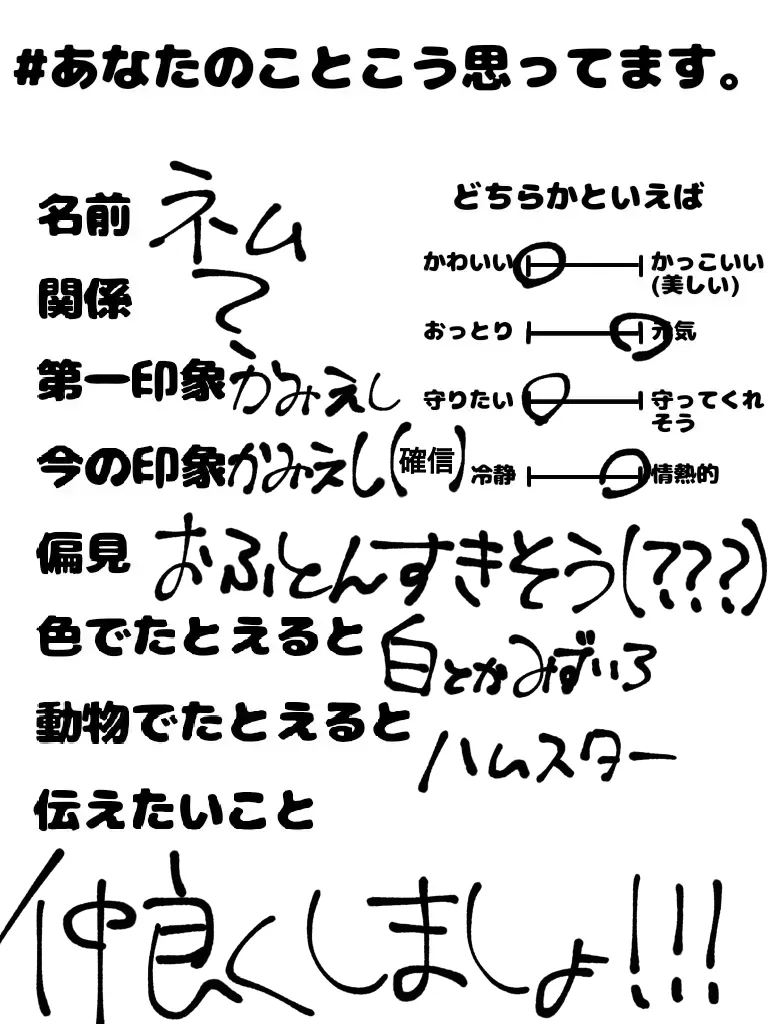 #あなたのことこう思ってます。
名前 ネム
関係 ?
第一印象 かみえし
今の印象 かみえし(確信)
どちらかといえば
かわいい かっこいい
(美しい)
おっとり 元気
守りたい 守ってくれ
そう
冷静 情熱的
偏見 おふとんすきそう(???)
色でたとえると 白とかみずいろ
動物でたとえると ハムスター
伝えたいこと
仲良くしましょ!!!